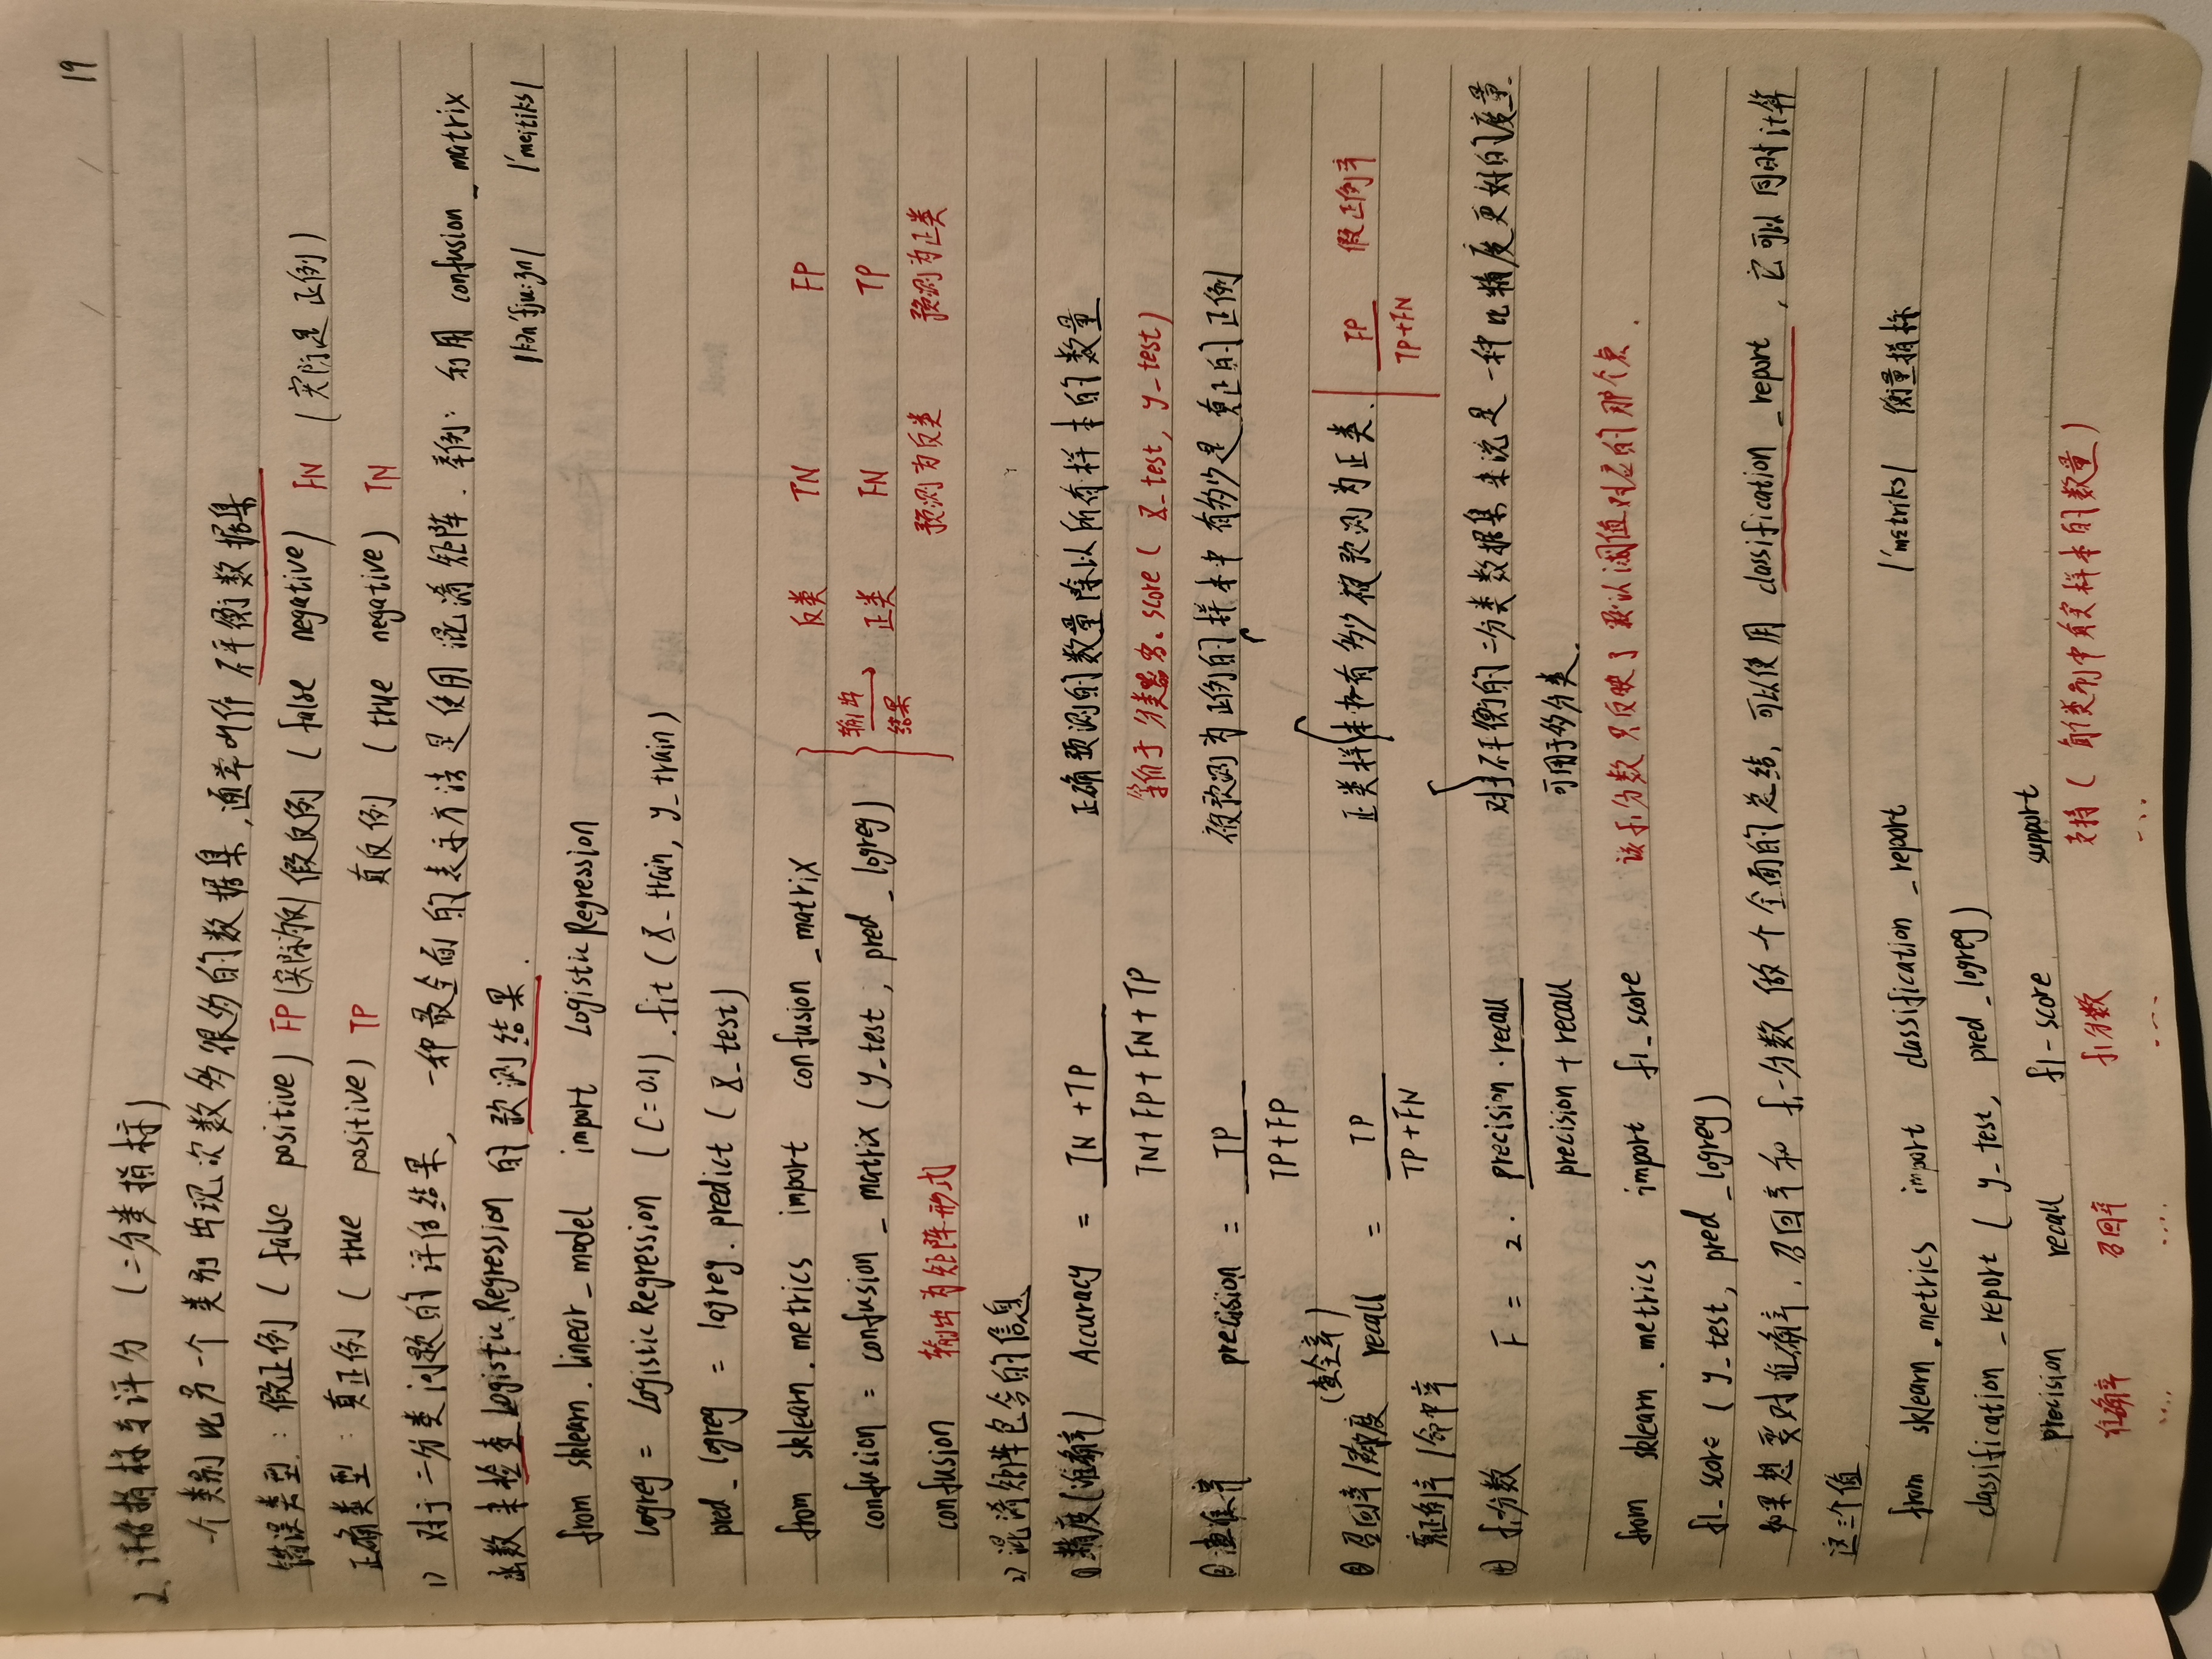 19
2. 评估指标与评分 (二分类指标)
一个类别比另一个类别出现次数多很多的数据集,通常叫作 不平衡数据集
错误类型: 假正例 (false positive) FP (实际为反例) 假反例 (false negative) FN (实际是正例)
正确类型: 真正例 (true positive) TP 真反例 (true negative) TN
1) 对于二分类问题的评估结果, 一种最全面的表示方法是使用混淆矩阵. 举例: 利用 confusion_matrix
函数来检查 LogisticRegression 的预测结果. |kənˈfju:ʒn| |ˈmeitiks|
from sklearn.linear_model import LogisticRegression
logreg = LogisticRegression (C=0.1).fit (X_train, y_train)
pred_logreg = logreg.predict (X_test)
from sklearn.metrics import confusion_matrix 反类 TN FP
confusion = confusion_matrix (y_test, pred_logreg) 输出结果 正类 FN TP
confusion 输出为矩阵形式 预测为反类 预测为正类
2) 混淆矩阵包含的信息
① 精度(准确率) Accuracy = TN+TP / TN+FP+FN+TP 正确预测的数量除以所有样本的数量
等价于 分类器名.score (X_test, y_test)
② 查准率 precision = TP / TP+FP 被预测为正例的样本中有多少是真正的正例
(查全率)
③ 召回率/灵敏度 recall = TP / TP+FN 正类样本中有多少被预测为正类. FP / TP+FN 假正例率
真正例率/命中率
④ f1分数 F = 2 · precision·recall / precision + recall 对于不平衡的二分类数据集来说是一种比精度更好的度量.
可用于多分类.
from sklearn.metrics import f1_score 该f1分数只反映了默认阈值对应的那个点.
f1_score (y_test, pred_logreg)
如果想要对准确率,召回率和f1-分数做一个全面的总结,可以使用 classification_report, 它可以同时计算
这三个值
from sklearn.metrics import classification_report |ˈmetriks| 衡量指标
classification_report (y_test, pred_logreg)
precision recall f1-score support
准确率 召回率 f1分数 支持 (每个类别中真实样本的数量)
.... .... .... ...